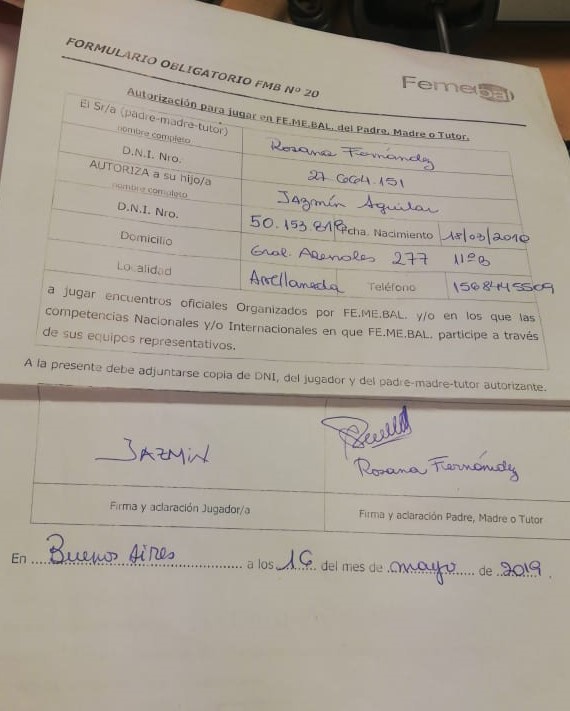 FORMULARIO OBLIGATORIO FMB Nº 20
Femebal
Autorización para jugar en FE.ME.BAL. del Padre, Madre o Tutor.
El Sr/a (padre-madre-tutor)
nombre completo
Rosana Fernández
D.N.I. Nro.
AUTORIZA a su hijo/a
nombre completo
Jazmín Aguilar
D.N.I. Nro.
50.153.819
Fcha. Nacimiento
18/03/2010
Domicilio
Gral. Arenales 277 11º B
Localidad
Avellaneda
Teléfono
a jugar encuentros oficiales Organizados por FE.ME.BAL. y/o en los que las
competencias Nacionales y/o Internacionales en que FE.ME.BAL. participe a través
de sus equipos representativos.
A la presente debe adjuntarse copia de DNI, del jugador y del padre-madre-tutor autorizante.
JAZMIN
Rosana Fernández
Firma y aclaración Jugador/a
Firma y aclaración Padre, Madre o Tutor
En Buenos Aires a los 16 del mes de mayo de 2019.